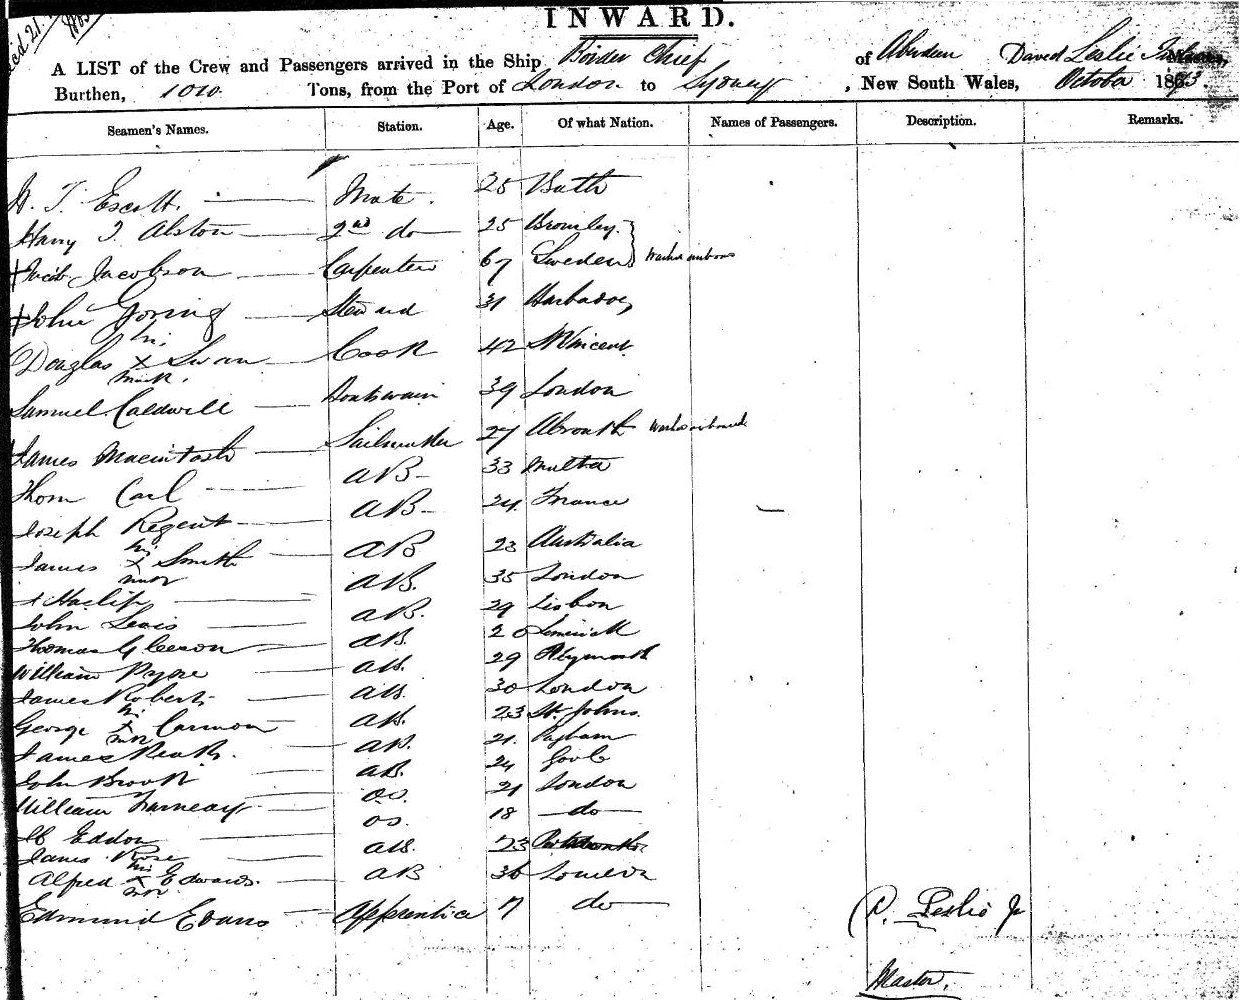 INWARD.
A LIST of the Crew and Passengers arrived in the Ship Border Chief of Aberdeen David Leslie Jr Master,
Burthen, 1010 Tons, from the Port of London to Sydney, New South Wales, October 1873.
Seamen's Names. Station. Age. Of what Nation. Names of Passengers. Description. Remarks.
W. T. Escott. Mate. 25 Bath
Harry T. Alston 2nd do 25 Bromley
+ Jacob Jacobson Carpenter 67 Sweden Washed overboard
+ John Goring Steward 31 Barbadoes
Douglas his x mark Swan Cook 42 St Vincent
Samuel Caldwell Boatswain 39 London
+ James Macintosh Sailmaker 27 Abroath Washed overboard
Thom Carl AB 33 Malta
Joseph Regent AB 24 France
James his x mark Smith AB 23 Australia
Haslip AB 35 London
John Lewis AB. 29 Lisbon
Thomas Gleeson AB 20 Limerick
William Pryore AB. 29 Plymouth
James Roberts AB. 30 London
George his x mark Carmon AB. 23 St. Johns
James AB. 21. Pagham
John Brook AB. 24 Goole
William Farneay OS. 21 London
Eddon OS. 18 do
James Rose AB. 23
Alfred his x mark Edwards. AB 36 London
Edmund Evans Apprentice 17 do
D. Leslie Jr
Master.